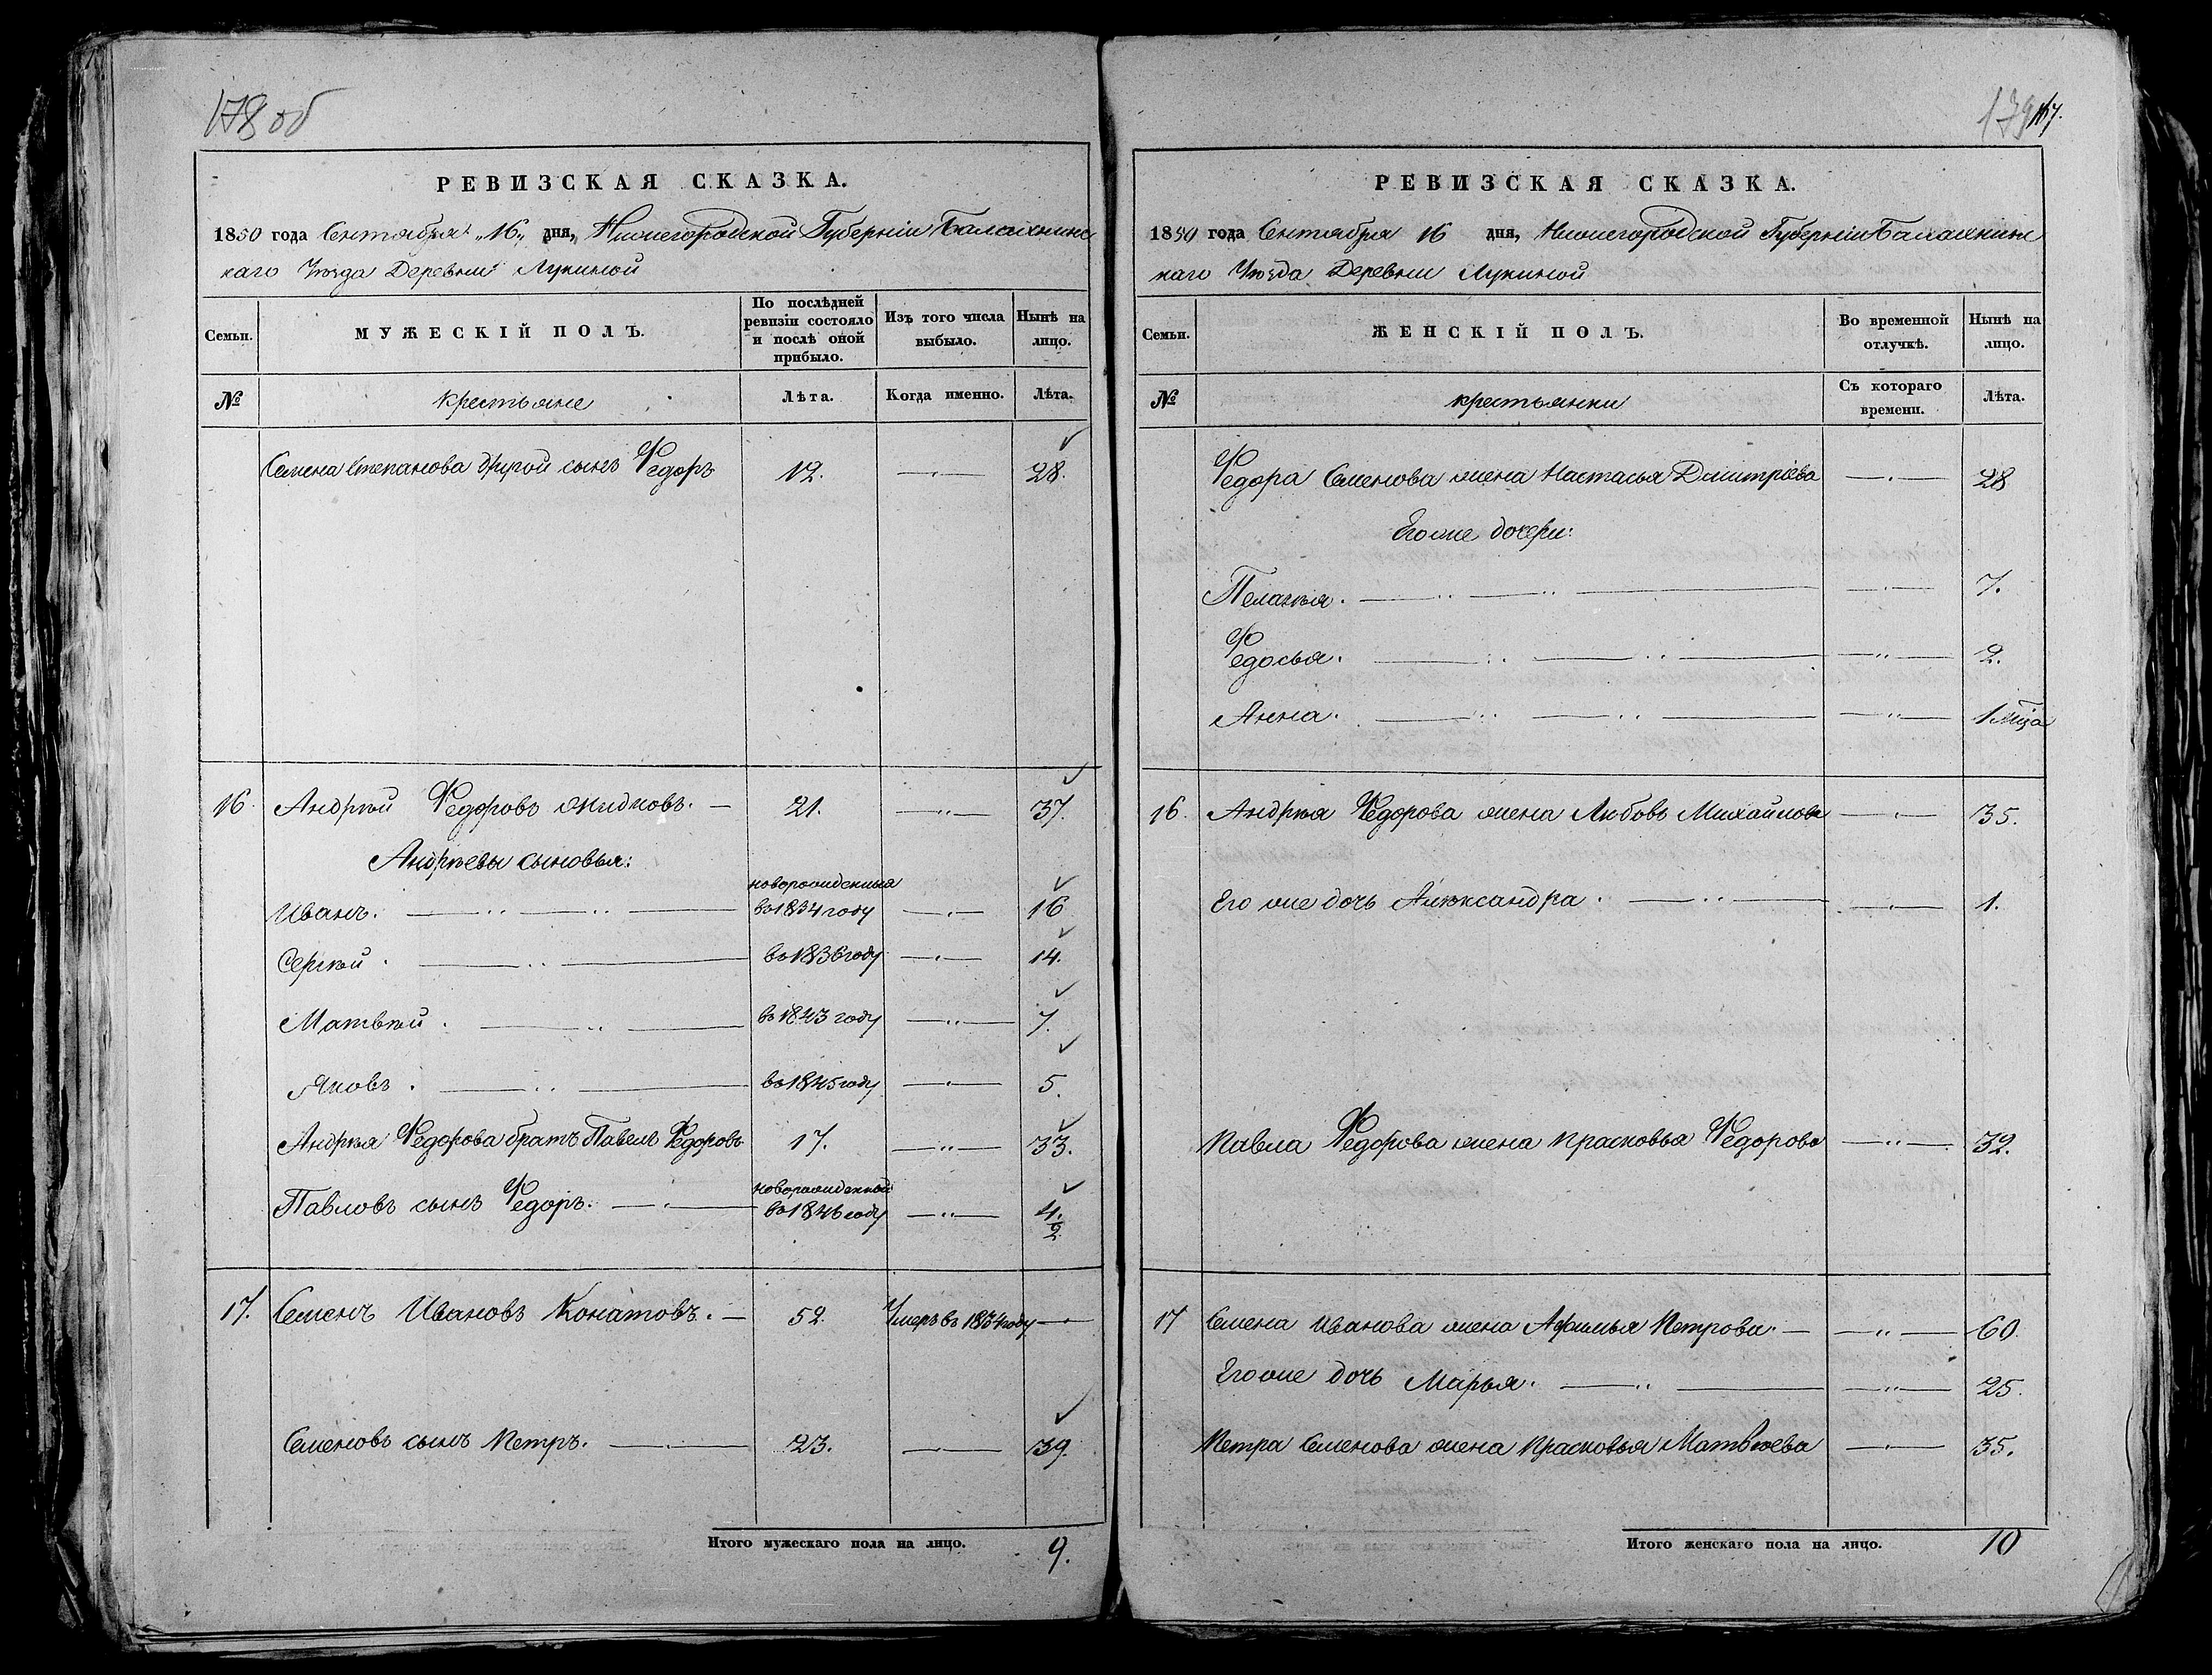 178 об
РЕВИЗСКАЯ СКАЗКА.
1850 года Сентября „16„ дня, Нижегородской Губерніи Балахнинс
каго Уѣзда Деревни Лукиной
Семьи.
МУЖЕСКІЙ ПОЛЪ.
По послѣдней ревизіи состояло и послѣ оной прибыло.
Изъ того числа выбыло.
Нынѣ на лицо.
№
крестьяне
Лѣта.
Когда именно.
Лѣта.
Семена Степанова другой сынъ Ѳедоръ 12. 28.
16. Андрѣй Ѳедоровъ 21. 37.
Андрѣевы сыновья:
Иванъ. новорожденныя въ 1834 году 16
Сергѣй. въ 1836 году 14.
Матвѣй. въ 1843 году 7.
Яковъ. въ 1845 году 5.
Андрѣя Ѳедорова братъ Павелъ Ѳедоровъ 17. 33.
Павловъ сынъ Ѳедоръ. новорожденный въ 1846 году 4. 2.
17. Семенъ Ивановъ Конатовъ. 52. Умеръ въ 1834 году
Семеновъ сынъ Петръ. 23. 39.
Итого мужескаго пола на лицо. 9.
179 167.
РЕВИЗСКАЯ СКАЗКА.
1850 года Сентября 16 дня, Нижегородской Губерніи Балахнинс
каго Уѣзда Деревни Лукиной
Семьи.
ЖЕНСКІЙ ПОЛЪ.
Во временной отлучкѣ.
Нынѣ на лицо.
№
крестьянки
Съ котораго времени.
Лѣта.
Ѳедора Семенова жена Настасья Дмитріева 28
Его же дочери:
Пелагѣя. 7.
Ѳедосья. 2.
Анна. 1 мѣца
16. Андрѣя Ѳедорова жена Любовь Михайлова 35.
Его же дочь Александра. 1.
Павла Ѳедорова жена Прасковья Ѳедорова 32.
17 Семена Иванова жена Афимья Петрова. 60.
Его же дочь Марья. 25.
Петра Семенова жена Прасковья Матвѣева 35.
Итого женскаго пола на лицо. 10